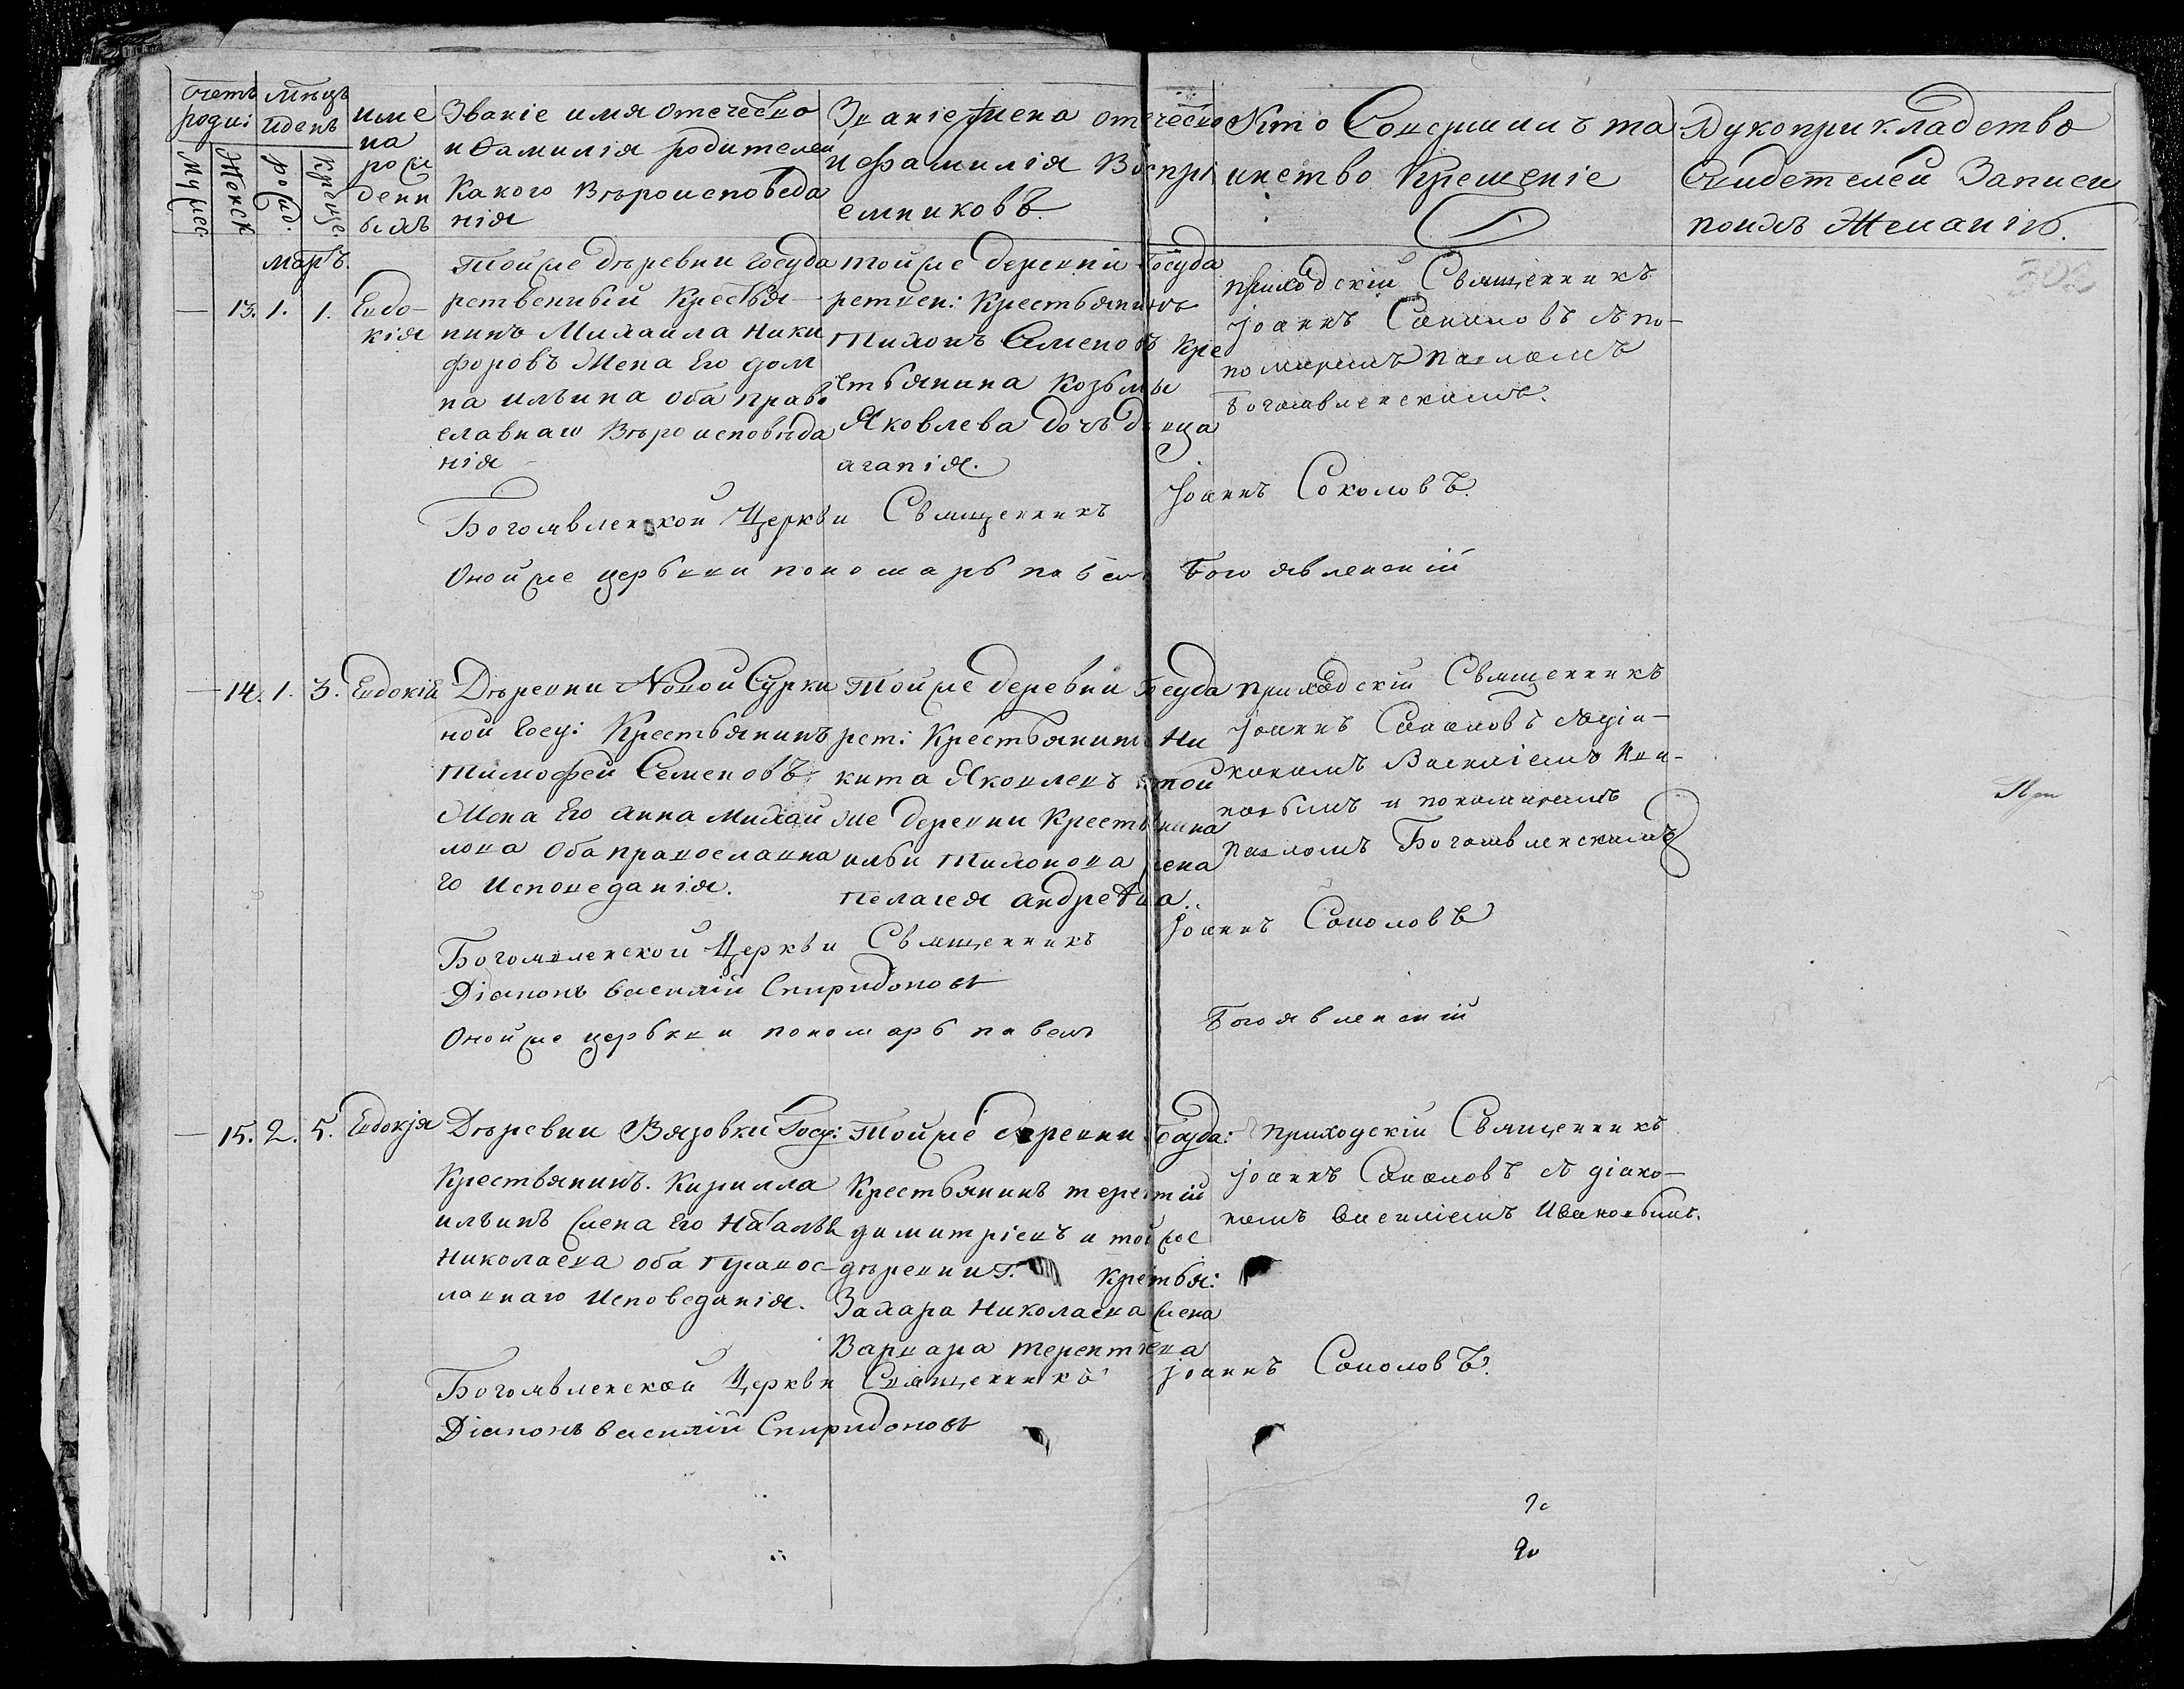 Счетъ роди:
Мужес.
Женск
Мѣцъ иденъ
рожд.
креще.
име
на
рож
денн
ыхъ
Званіе имя отечество
и фамилія родителей
Какого Вѣроисповеда
нія
Званіе имена отечество
и фамилія Воспрі
емниковъ.
Кто Совершилъ та
инство Крещеніе
Рукоприкладство
Свидетелей Записи
поихъ Желанію.
302
маръ.
— 13. 1. 1.
Евдо-
кія
Тойже дѣревни Госуда
рственный Крестья
нинъ Михаила Ники
форовъ Жена Его дом
на ильина оба право
славнаго Вѣроисповѣда
нія
тойже деревни Госуда
рствен: Крестьянинъ
Тихонъ Семеновъ Кре
стьянина Козьмы
Яковлева дочь девица
агапія.
приходскій Священникъ
Іоаннъ Соколовъ съ по-
номаремъ Павломъ
Богоявленскимъ.
Богоявленской Церкви Священникъ Іоаннъ Соколовъ.
Онойже церькви пономарь павелъ Богоявленскій
— 14. 1. 3. Евдокія
Дѣревни Новой Сурки
ной Госу: Крестьянинъ
Тимофей Семеновъ
Жена Его Анна Михай
лова Оба православна
го Исповеданія.
Тойже деревни Госуда
рст: Крестьянинъ Ни
кита Яковлевъ и той
же деревни Крестьянина
ильи Тихонова жена
Пелагея андрева.
приходскій Священникъ
Іоаннъ Соколовъ съ діа-
кономъ Василіемъ Ива-
новымъ и пономаремъ
Павломъ Богоявленскимъ
Богоявленской Церкви Священникъ Іоаннъ Соколовъ
Діаконъ василій Спиридоновъ
Онойже церькви пономарь павелъ Богоявленскій
— 15. 2. 5. Евдокія
Дѣревни Вязовки Госу:
Крестьянинъ. Кирилла
ильинъ жена Его Наталья
Николаева оба Правос-
лавнаго Исповеданія.
Тойже деревни Госуда:
Крестьянинъ терентій
димитріевъ и тойже
дѣревни Г. Крестья:
Захара Николаева жена
Варвара терентиева
приходскій Священникъ
Іоаннъ Соколовъ съ діако-
номъ василіемъ Ивановымъ.
Богоявленской Церкви Священникъ Іоаннъ Соколовъ.
Діаконъ василій Спиридоновъ